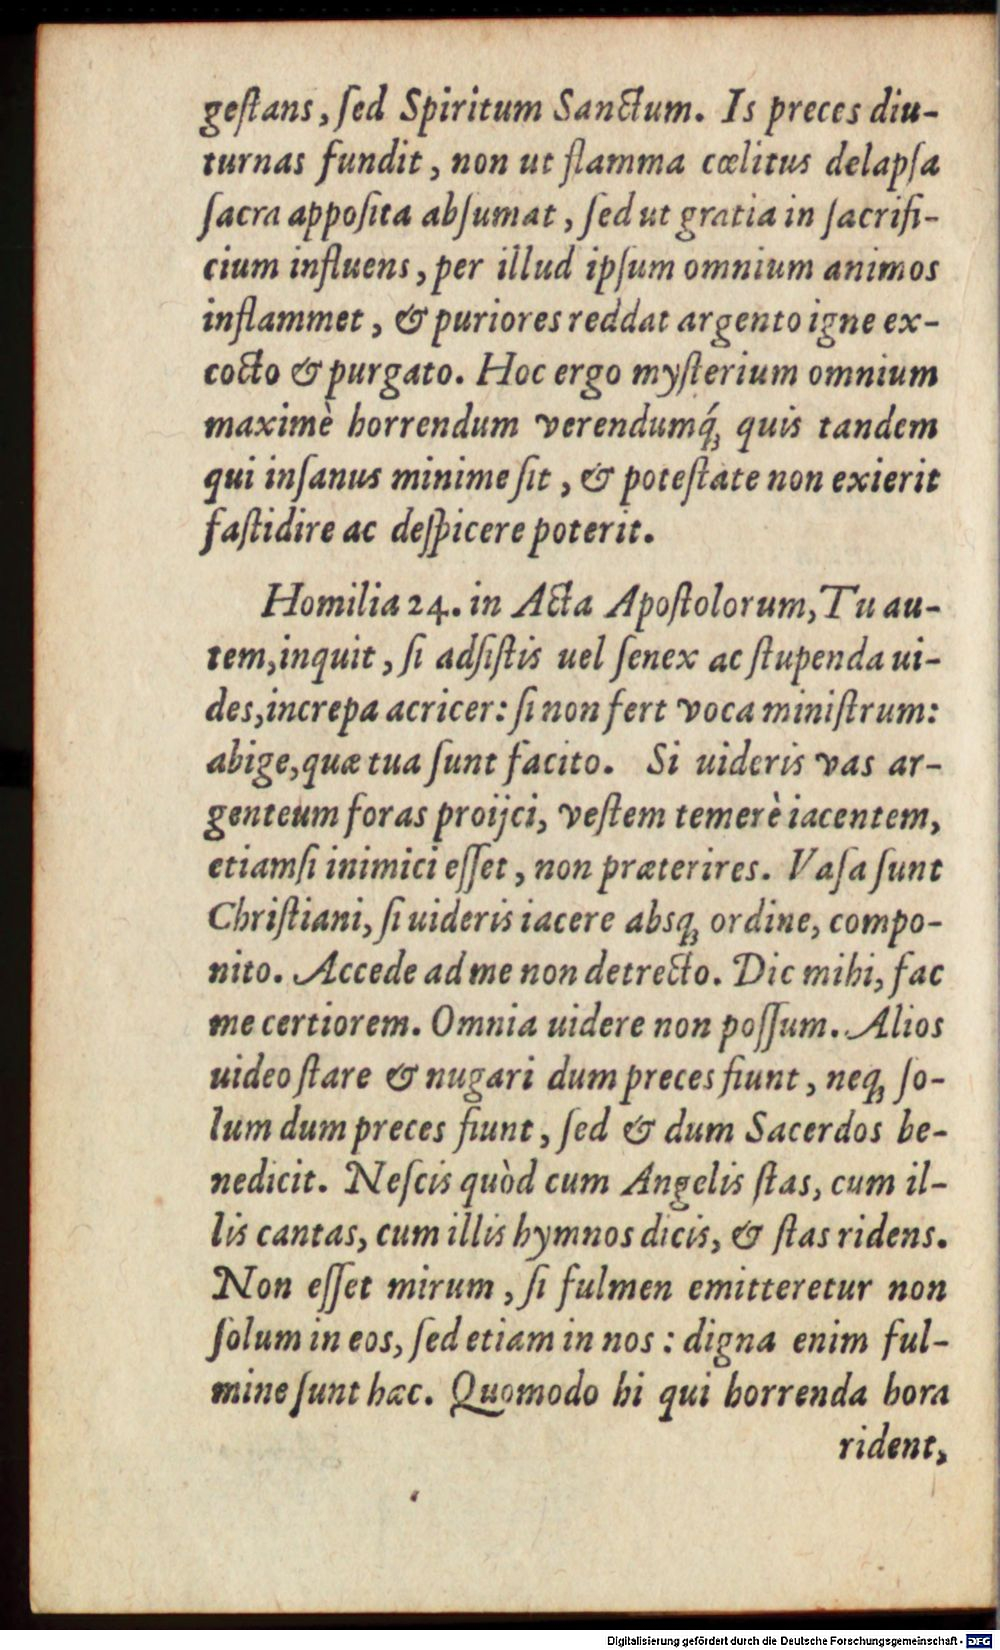 geſtans, ſed Spiritum Sanctum. Is preces diu-
turnas fundit, non ut flamma cœlitus delapſa
ſacra appoſita abſumat, ſed ut gratia in ſacrifi-
cium influens, per illud ipſum omnium animos
inflammet, & puriores reddat argento igne ex-
cocto & purgato. Hoc ergo myſterium omnium
maximè horrendum verendumq́ꝫ quis tandem
qui inſanus minime ſit, & poteſtate non exierit
faſtidire ac deſpicere poterit.
Homilia 24. in Acta Apoſtolorum, Tu au-
tem, inquit, ſi adſiſtis uel ſenex ac ſtupenda ui-
des, increpa acricer: ſi non fert voca miniſtrum:
abige, quæ tua ſunt facito. Si uideris vas ar-
genteum foras proijci, veſtem temerè iacentem,
etiamſi inimici eſſet, non præterires. Vaſa ſunt
Chriſtiani, ſi uideris iacere absqꝫ ordine, compo-
nito. Accede ad me non detrecto. Dic mihi, fac
me certiorem. Omnia uidere non poſſum. Alios
uideo ſtare & nugari dum preces fiunt, neqꝫ ſo-
lum dum preces fiunt, ſed & dum Sacerdos be-
nedicit. Neſcis quòd cum Angelis ſtas, cum il-
lis cantas, cum illis hymnos dicis, & ſtas ridens.
Non eſſet mirum, ſi fulmen emitteretur non
ſolum in eos, ſed etiam in nos: digna enim ful-
mine ſunt hæc. Quomodo hi qui horrenda hora
rident,
Digitalisierung gefördert durch die Deutsche Forschungsgemeinschaft - DFG